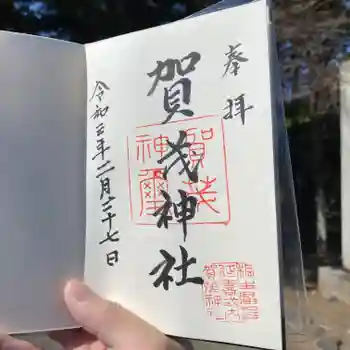 奉拝
賀茂神社
賀茂
神璽
令和三年二月二十七日